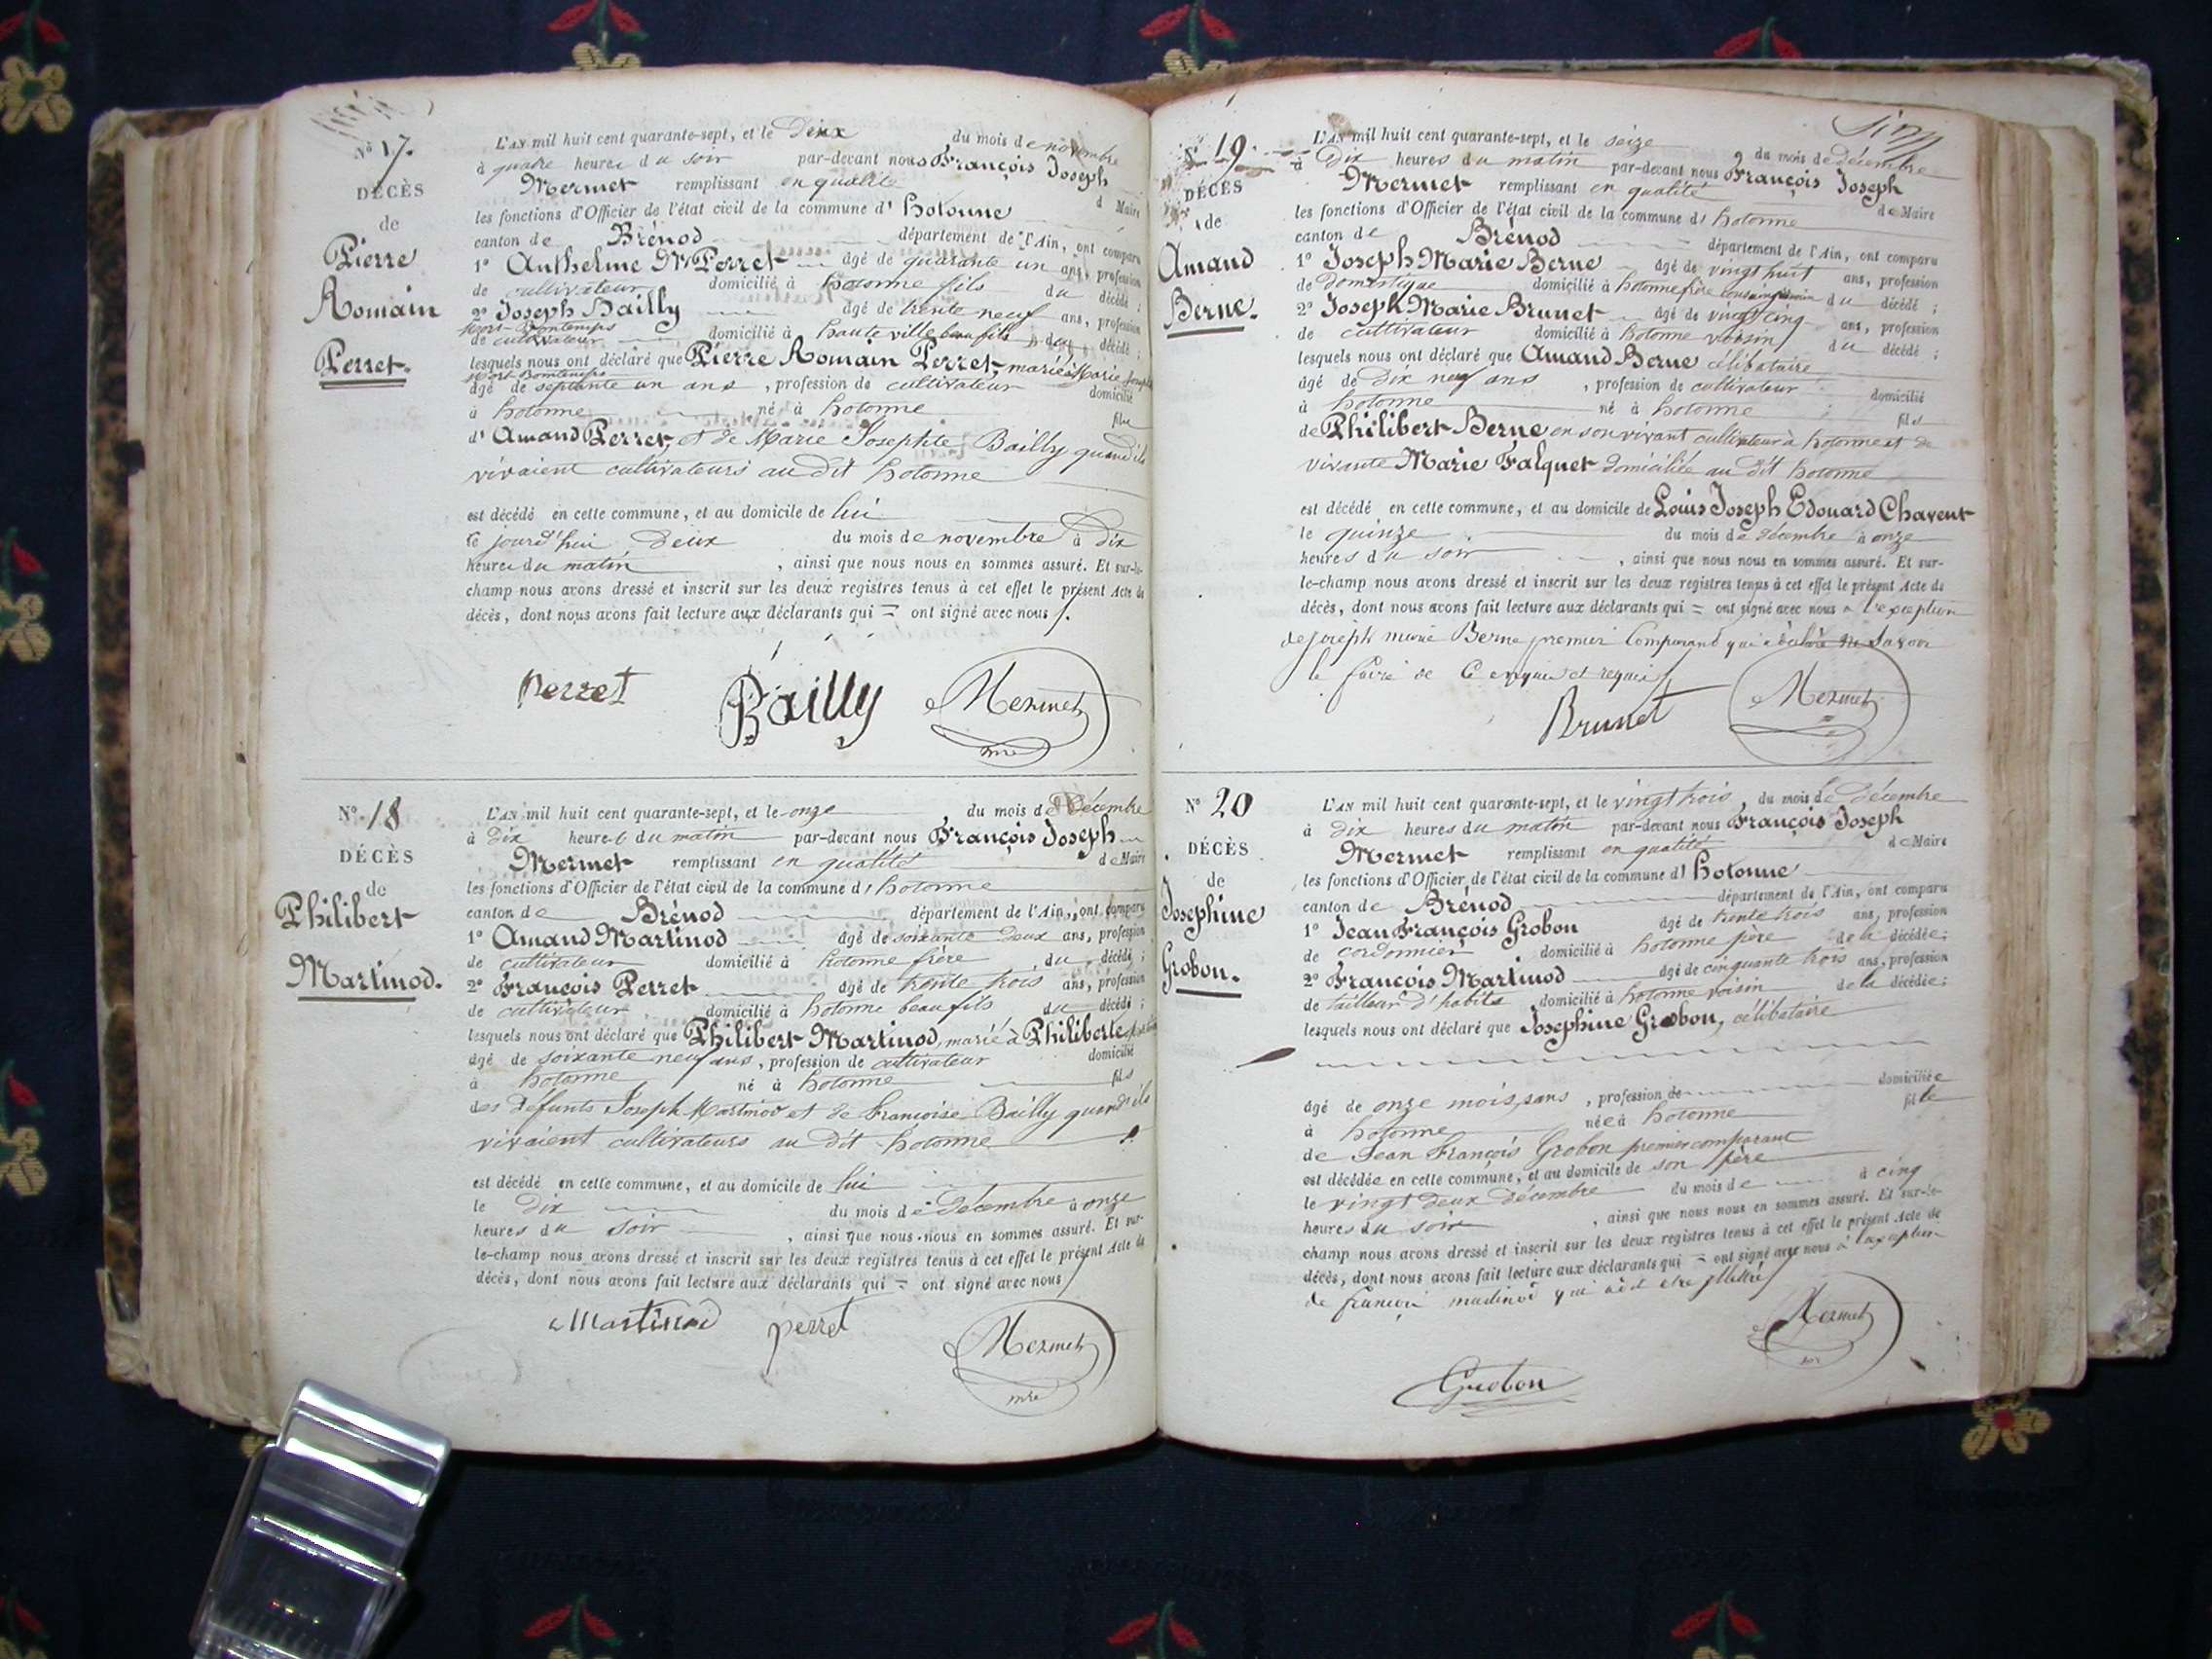 N° 17.
DÉCÈS
de
Pierre
Romain
Perret.
L'AN mil huit cent quarante-sept, et le Deux du mois de novembre
à quatre heures du soir par-devant nous François Joseph
Mermet remplissant en qualité d Maire
les fonctions d'Officier de l'état civil de la commune d' hotonne
canton de Brénod département de l'Ain, ont comparu
1° Anthelme Perret âgé de quarante un ans, profession
de cultivateur domicilié à hotonne fils du décédé ;
2° Joseph Bailly âgé de trente neuf ans, profession
de cultivateur domicilié à haute ville beau fils du décédé ;
lesquels nous ont déclaré que Pierre Romain Perret, marié à Marie Josephte
âgé de septante un ans, profession de cultivateur domicilié
à hotonne né à hotonne fils
d' Amand Perret, et de Marie Josephte Bailly quand ils
vivaient cultivateurs au dit hotonne
est décédé en cette commune, et au domicile de lui
le jourd'hui Deux du mois de novembre à dix
heures du matin, ainsi que nous nous en sommes assuré. Et sur-le-
champ nous avons dressé et inscrit sur les deux registres tenus à cet effet le présent Acte de
décès, dont nous avons fait lecture aux déclarants qui = ont signé avec nous
Perret Bailly Mermet
mre
N° 18
DÉCÈS
de
Philibert
Martinod.
L'AN mil huit cent quarante-sept, et le onze du mois de Décembre
à dix heures du matin par-devant nous François Joseph
Mermet remplissant en qualité de Maire
les fonctions d'Officier de l'état civil de la commune d' hotonne
canton de Brénod département de l'Ain, ont comparu
1° Amand Martinod âgé de soixante Deux ans, profession
de cultivateur domicilié à hotonne frère du décédé ;
2° François Perret âgé de trente trois ans, profession
de cultivateur domicilié à hotonne beau fils du décédé ;
lesquels nous ont déclaré que Philibert Martinod, marié à Philiberte
âgé de soixante neuf ans, profession de cultivateur domicilié
à hotonne né à hotonne fils
des défunts Joseph Martinod et de Françoise Bailly quand ils
vivaient cultivateurs au dit hotonne
est décédé en cette commune, et au domicile de lui
le Dix du mois de Décembre à onze
heures du soir, ainsi que nous nous en sommes assuré. Et sur-
le-champ nous avons dressé et inscrit sur les deux registres tenus à cet effet le présent Acte de
décès, dont nous avons fait lecture aux déclarants qui = ont signé avec nous
Martinod perret Mermet
mre
N° 19
DÉCÈS
de
Amand
Berne.
L'AN mil huit cent quarante-sept, et le seize du mois de décembre
à Dix heures du matin par-devant nous François Joseph
Mermet remplissant en qualité de Maire
les fonctions d'Officier de l'état civil de la commune d' hotonne
canton de Brénod département de l'Ain, ont comparu
1° Joseph Marie Berne âgé de vingt huit ans, profession
de Domestique domicilié à hotonne frère du décédé ;
2° Joseph Marie Brunet âgé de vingt cinq ans, profession
de cultivateur domicilié à hotonne voisin du décédé ;
lesquels nous ont déclaré que Amand Berne célibataire
âgé de Dix neuf ans, profession de cultivateur domicilié
à hotonne né à hotonne fils
de Philibert Berne en son vivant cultivateur à hotonne et de
vivante Marie Falquet domiciliée au dit hotonne
est décédé en cette commune, et au domicile de Louis Joseph Edouard Chavent
le quinze du mois de décembre à onze
heures du soir, ainsi que nous nous en sommes assuré. Et sur-
le-champ nous avons dressé et inscrit sur les deux registres tenus à cet effet le présent Acte de
décès, dont nous avons fait lecture aux déclarants qui = ont signé avec nous à l'exception
de joseph marie Berne premier Comparant qui a déclaré ne Savoir
le faire de Ce enquis et requis
Brunet Mermet
N° 20
DÉCÈS
de
Josephine
Grobon.
L'AN mil huit cent quarante-sept, et le vingt trois, du mois de décembre
à dix heures du matin par-devant nous François Joseph
Mermet remplissant en qualité de Maire
les fonctions d'Officier de l'état civil de la commune d' hotonne
canton de Brénod département de l'Ain, ont comparu
1° Jean François Grobon âgé de trente trois ans, profession
de cordonnier domicilié à hotonne père de la décédée ;
2° François Martinod âgé de cinquante trois ans, profession
de tailleur d'habits domicilié à hotonne voisin de la décédée ;
lesquels nous ont déclaré que Josephine Grobon, célibataire
âgé de onze mois, sans, profession de domiciliée
à hotonne née à hotonne fille
de Jean François Grobon premier comparant
est décédée en cette commune, et au domicile de son père
le vingt deux décembre du mois de à cinq
heures du soir, ainsi que nous nous en sommes assuré. Et sur-le-
champ nous avons dressé et inscrit sur les deux registres tenus à cet effet le présent Acte de
décès, dont nous avons fait lecture aux déclarants qui = ont signé avec nous à l'exception
de françois martinod qui a dit etre illettré
Mermet
Grobon